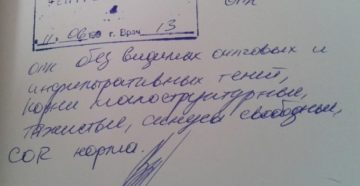 11. 06 г. Врач 13
ОГК
ОГК без видимых очаговых и
инфильтративных теней,
Корни малоструктурные,
тяжистые, синусы свободные,
COR норма.